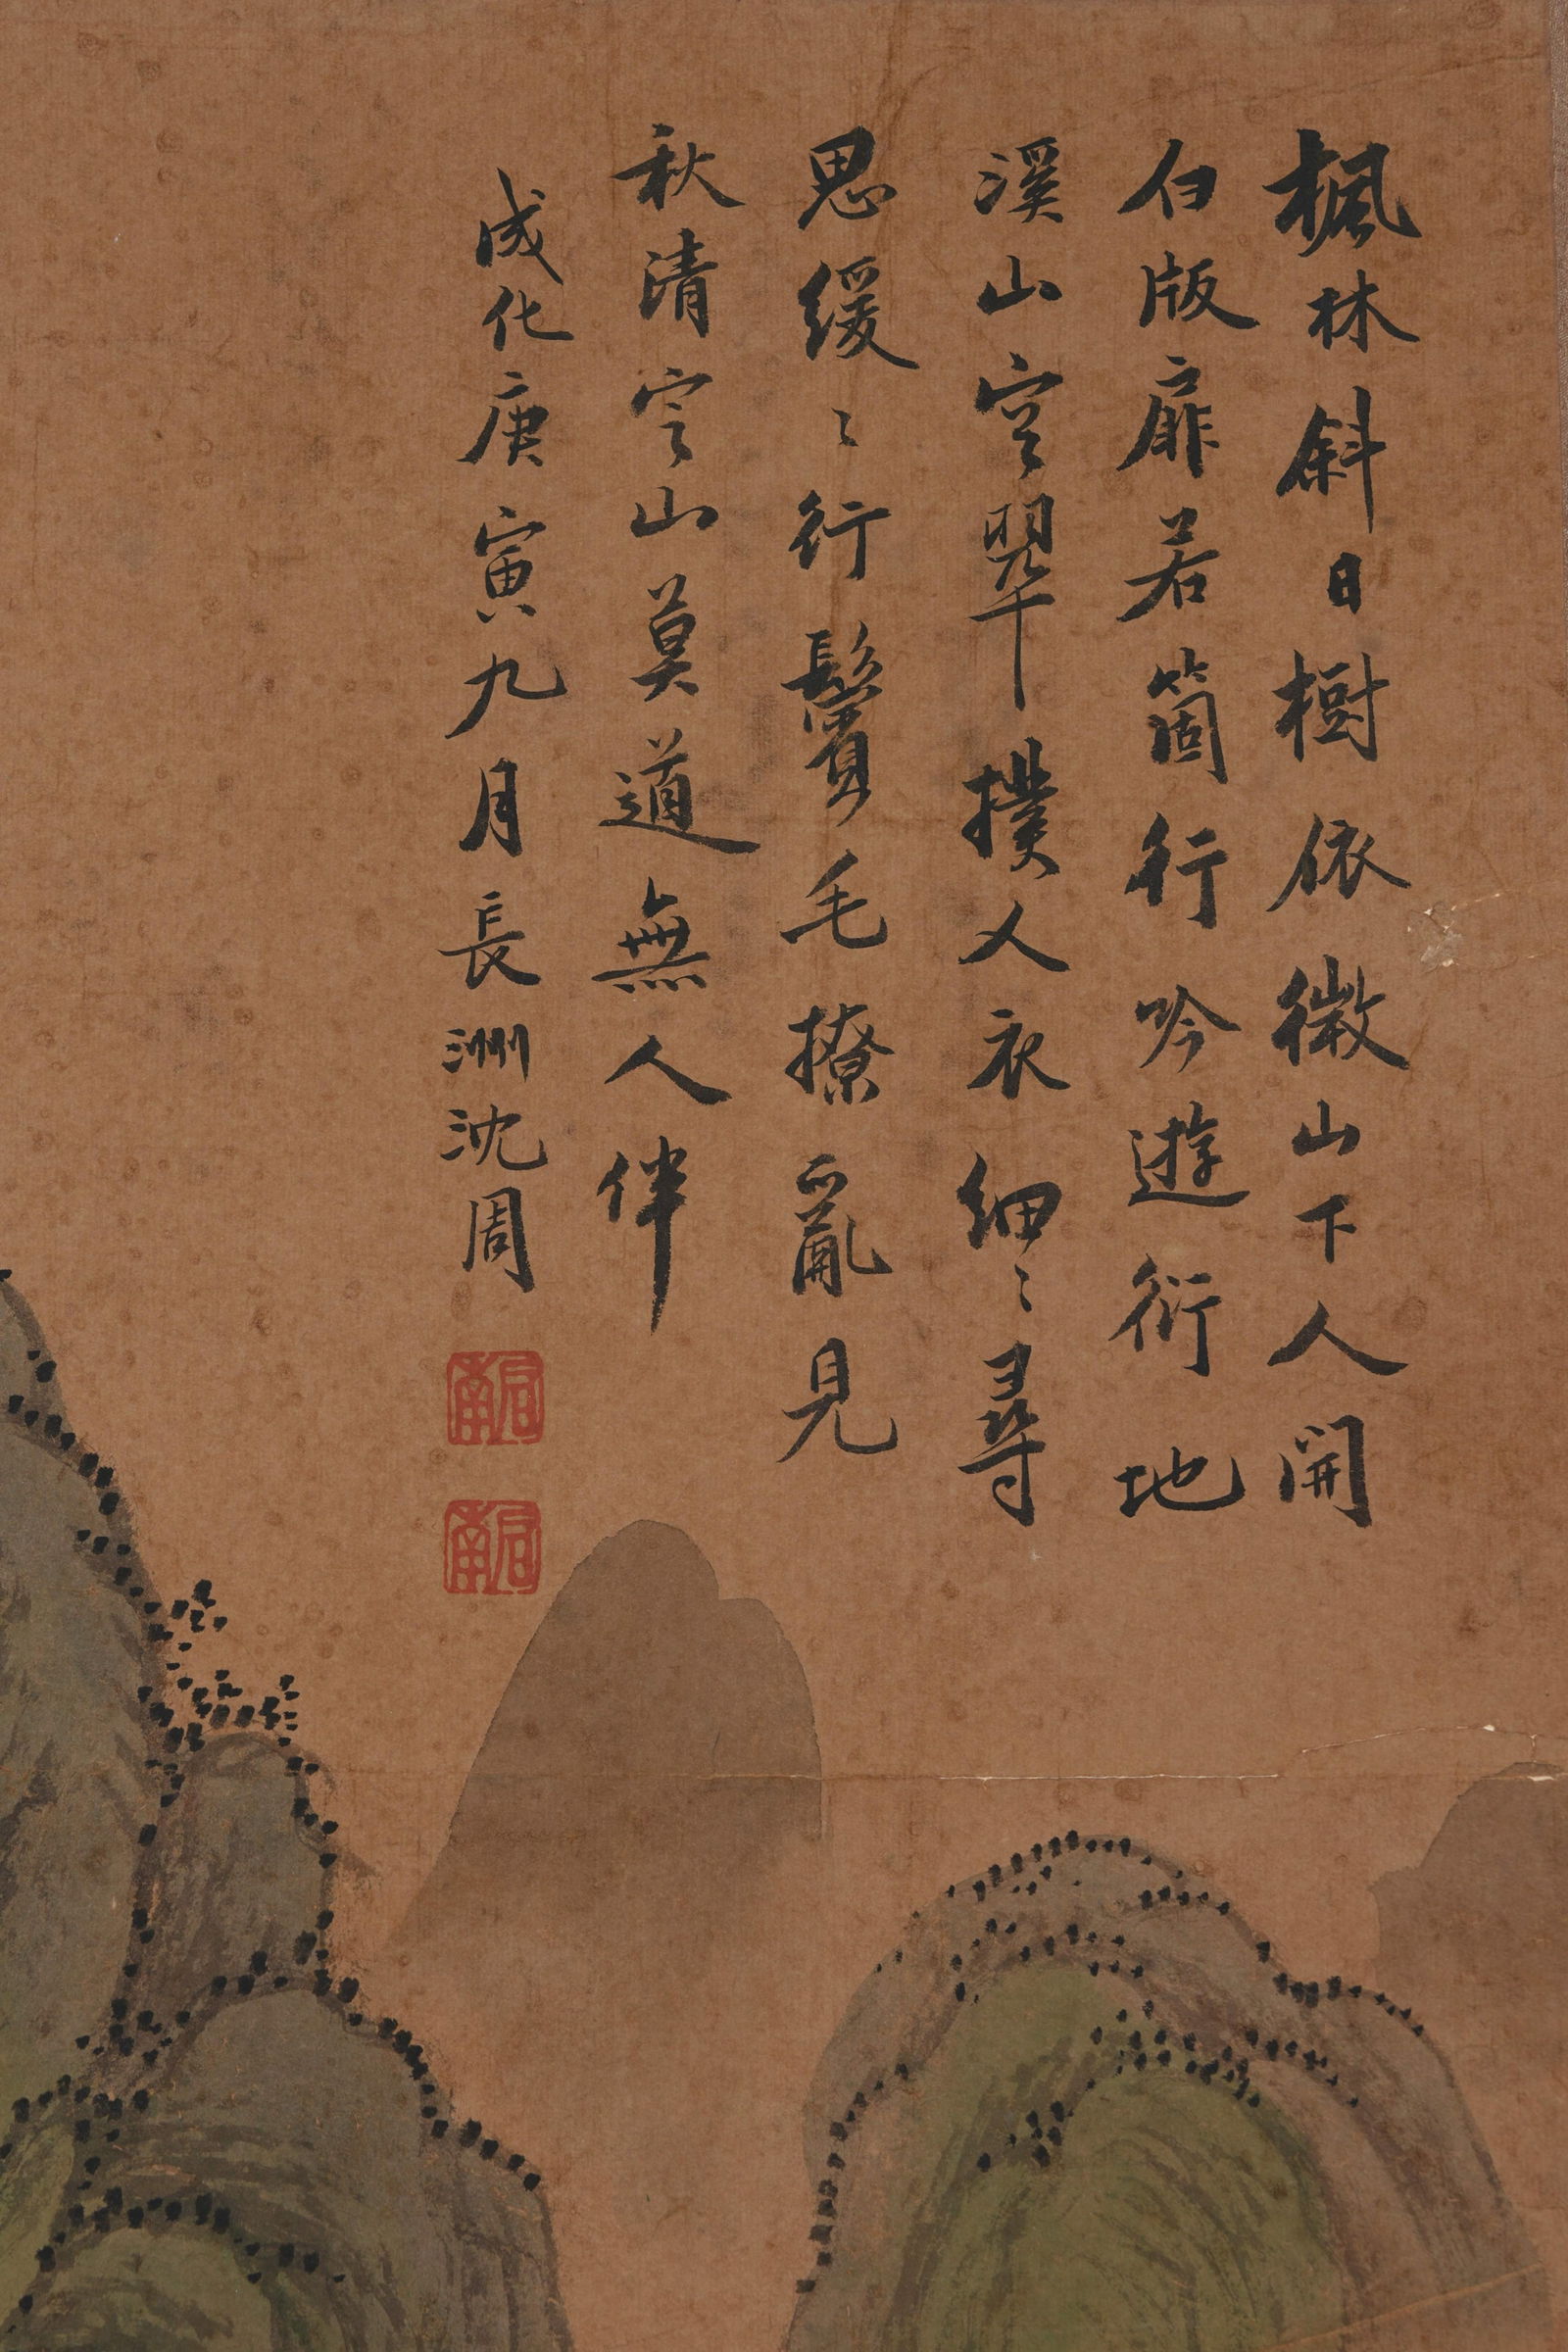 楓林斜日樹依微山下人開
白版扉若箇行吟遊衍地
溪山空翠撲人衣細〻尋
思緩〻行鬢毛撩亂見
秋清空山莫道無人伴
成化庚寅九月長洲沈周
启南
启南